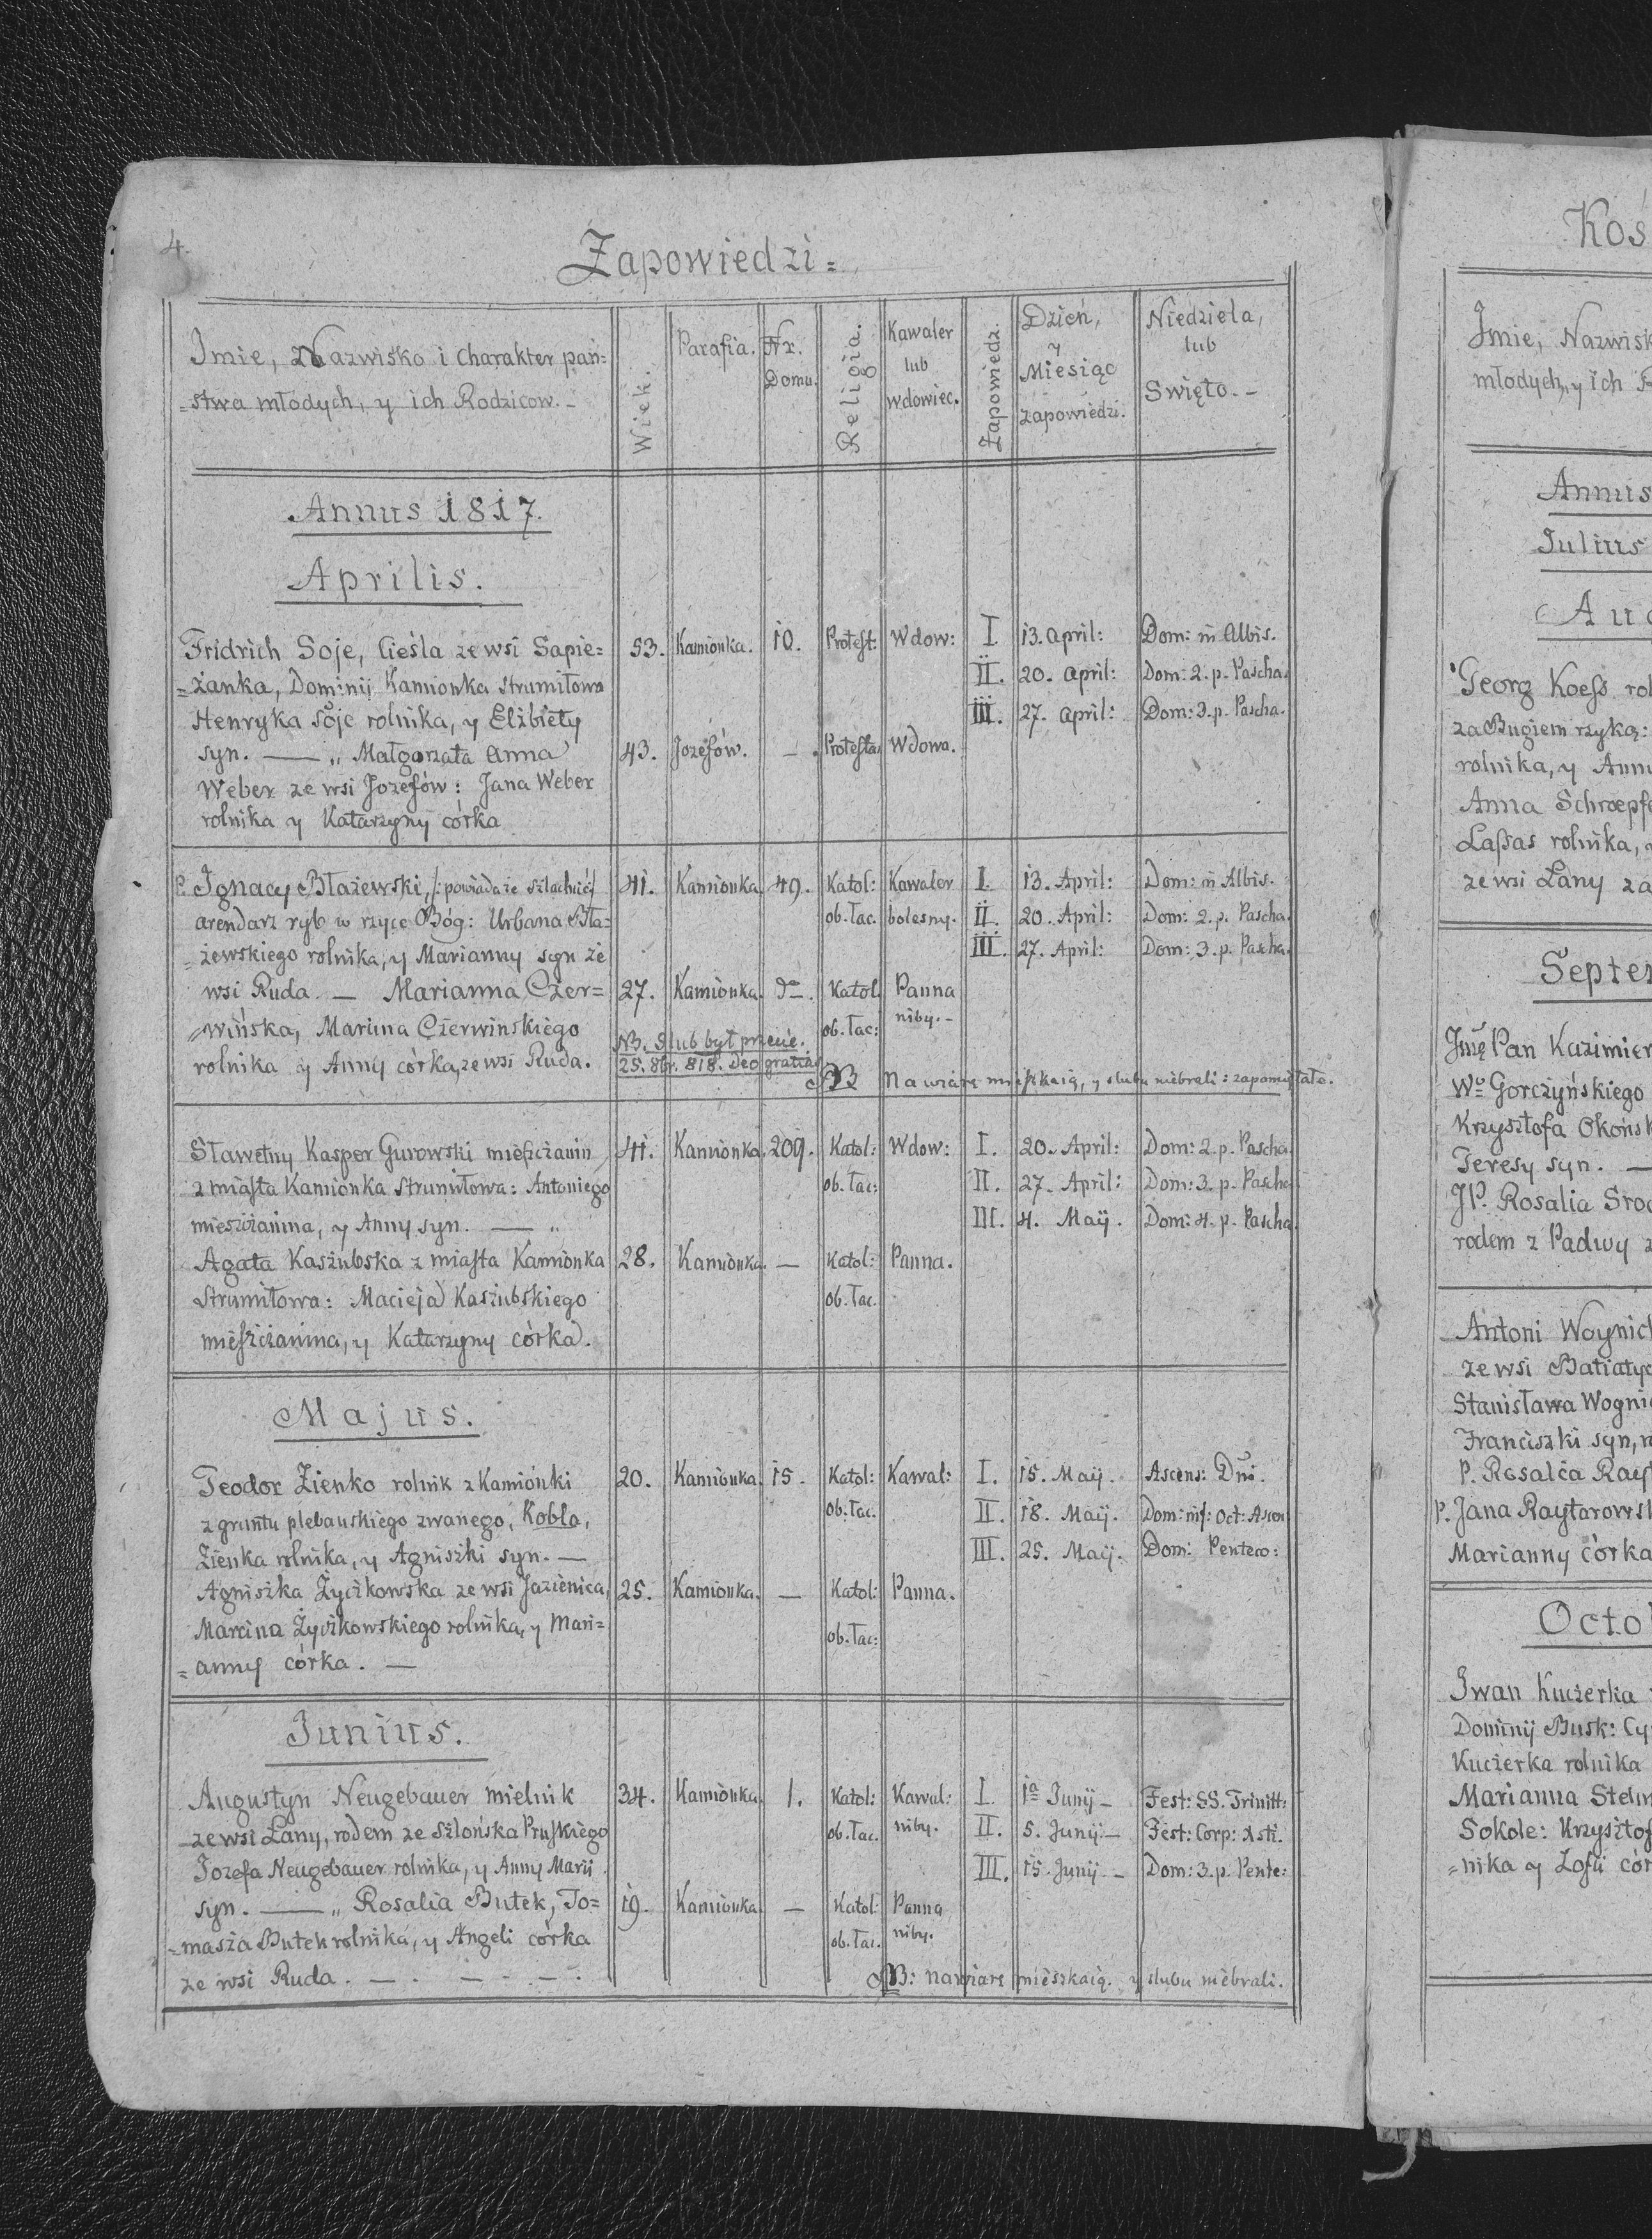 4.
Zapowiedzi =
Imie, Nazwisko i Charakter pań=
=stwa młodych, y ich Rodzicow. -
Wiek.
Parafia.
Nr.
Domu.
Religia.
Kawaler
lub
wdowiec.
Zapowiedz.
Dzień,
y
Miesiąc
zapowiedzi.
Niedziela,
lub
Swięto. -
Annus 1817.
Aprilis.
Fridrich Soje, Cieśla ze wsi Sapie= 53. Kamionka. 10. Protest: Wdow: I. 13. april: Dom: in Albis.
=żanka, Dominij Kamionka strumiłowa II. 20. april: Dom: 2. p. Pascha.
Henryka soje rolnika, y Elżbiety III. 27. april: Dom: 3. p. Pascha.
syn. — „ Małgorzata Anna 43. Jozefów. — . Protesta Wdowa.
Weber ze wsi Jozefów : Jana Weber
rolnika y Katarzyny córka
P. Ignacy Błażewski, /: powiada że szlachcic/ 41. Kamionka. 49. Katol: Kawaler I. 13. April: Dom: in Albis.
arendarz ryb w rzyce Bóg: Urbana Bła= ob. łac. bolesny. II. 20. April: Dom: 2. p. Pascha.
=żewskiego rolnika, y Marianny syn ze III. 27. April: Dom: 3. p. Pascha.
wsi Ruda — Marianna Czer= 27. Kamionka. do. Katol. Panna
=wińska, Marcina Czerwinskiego ob. łac: niby. -
rolnika y Anny córka, ze wsi Ruda. NB. slub był przecie.
25. 8br. 818. Deo gratias
NB Na wiarę mieszkaią, y slubu niebrali : zapomystało.
Sławetny Kasper Gurowski miesczanin 41. Kamionka. 209. Katol: Wdow: I. 20. April: Dom: 2. p. Pascha.
z miasta Kamionka strumiłowa: Antoniego ob. łac: II. 27. April: Dom: 3. p. Pascha.
miesczanina, y Anny syn. — „ III. 4. Maij. Dom: 4. p. Pascha.
Agata Kaszubska z miasta Kamionka 28. Kamionka. — Katol: Panna.
Strumiłowa: Macieja Kaszubskiego ob. łac.
mieszczanina, y Katarzyny córka.
Majus.
Teodor Zienko rolnik z Kamiónki 20. Kamionka. 15. Katol: Kawal: I. 15. Maij. Ascens: Dni.
z gruntu plebanskiego zwanego, Kobla, ob. łac. II. 18. Maij. Dom: inf: oct: Ascen
Zienka rolnika, y Agniszki syn. — III. 25. Maij. Dom: Penteco:
Agniszka Życzkowska ze wsi Jazienica, 25. Kamionka. — Katol: Panna.
Marcina Życzkowskiego rolnika, y Mari= ob. łac:
=anny córka. —
Junius.
Augustyn Neugebauer mielnik 34. Kamionka. 1. Katol: Kawal: I. 1a Junij - Fest: SS. Trinitt:
ze wsi Łany, rodem ze Szlońska Pruskiego ob. łac. niby. II. 5. Junij - Fest: Corp: Xsti.
Jozefa Neugebauer rolnika, y Anny Marii III. 15. Junij - Dom: 3. p. Pente:
syn. — „ Rosalia Butek, To= 19. Kamionka. — Katol: Panna
=masza Butek rolnika, y Angeli córka ob. łac. niby.
ze wsi Ruda. — . — . — .
NB: na wiarę mieszkaią. y slubu niebrali.
Koś
Imie, Nazwisk
młodych, y ich R
Annus
Julius
Au
Georg Koess rol
za Bugiem rzyką:
rolnika, y Ann
Anna Schroepf
Lassas rolnika,
ze wsi Łany za
Septem
Jmę Pan Kazimier
Wo Gorczyńskiego
Krzysztofa Okońsk
Teresy syn. —
JP. Rosalia Sroc
rodem z Padwy z
Antoni Woynic
ze wsi Batiatyc
Stanisława Wogni
Franciszki syn,
P. Rosalia Rayt
P. Jana Raytarowsk
Marianny córka
Octo
Iwan Kuczerka
Dominij Busk: Cy
Kuczerka rolnika
Marianna Stelm
Sokole: Krzysztof
=nika y Zofii cór